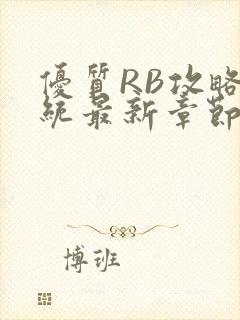 優質RB攻略
統最新章節
博班